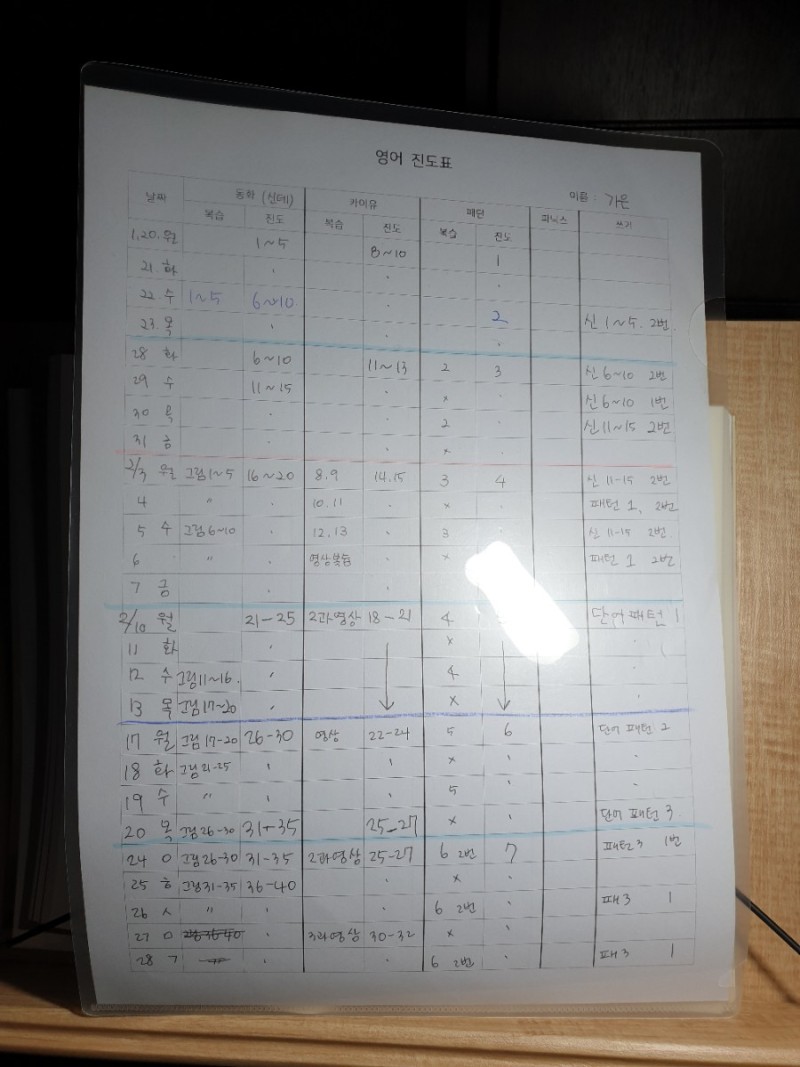 영어 진도표
이름 : 가은
날짜 동화 (신데) 카이유 패턴 파닉스 쓰기
복습 진도 복습 진도 복습 진도
1.20. 월 1~5 8~10 1
21 화
22 수 1~5 6~10 2 신 1~5. 2번
23. 목
28 화 6~10 11~13 2 3 신 6~10 2번
29 수 11~15 x 신 6~10 1번
30 목 2 신 11~15 2번
31 금 x
2/3 월 그림 1~5 16~20 8.9 14.15 3 4 신 11-15 2번
4 " 10.11 x 패턴 1, 2번
5 수 그림 6~10 12.13 3 신 11-15 2번
6 " 영상복습 x 패턴 1 2번
7 금
2/10 월 21-25 2과영상 18-21 4 단어 패턴 1
11 화 x
12 수 그림 11~16. 4
13 목 그림 17~20 x
17 월 그림 17-20 26-30 영상 22-24 5 6 단어 패턴 2
18 화 그림 21-25 x
19 수 " 5
20 목 그림 26-30 31-35 25-27 x 단어 패턴 3
24 그림 26-30 31-35 2과영상 25-27 6 2번 7 패턴 3 1번
25 그림 31-35 36-40 x
26 " 6 2번 패 3 1
27 3과영상 30-32 x
28 6 2번 패 3 1